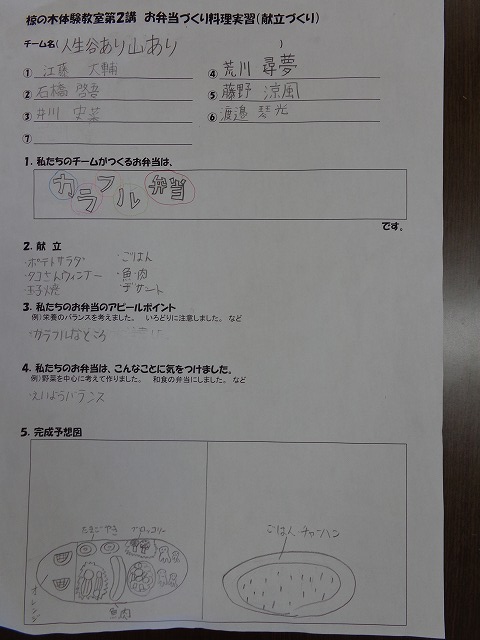 椋の木体験教室第2講 お弁当づくり料理実習(献立づくり)
チーム名(人生谷あり山あり)
① 江藤 大輔
④ 荒川 尋夢
② 石橋 啓吾
⑤ 藤野 涼風
③ 井川 史菜
⑥ 渡邉 琴光
⑦
1. 私たちのチームがつくるお弁当は、
カラフル弁当
です。
2. 献立
・ポテトサラダ ・ごはん
・タコさんウィンナー ・魚・肉
・玉子焼 ・デザート
3. 私たちのお弁当のアピールポイント
例)栄養のバランスを考えました。 いろどりに注意しました。 など
・カラフルなところ
4. 私たちのお弁当は、こんなことに気をつけました。
例)野菜を中心に考えて作りました。 和食の弁当にしました。 など
・えいようバランス
5. 完成予想図
たまごやき ブロッコリー
オレンジ
魚肉
ごはん チャーハン